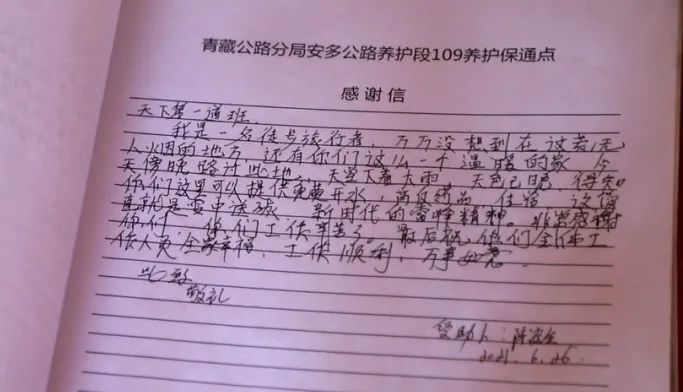 青藏公路分局安多公路养护段109养护保通点
感谢信
天下第一道班.
我是一名徒步旅行者，万万没想到在这荒无
人烟的地方，还有你们这么一个温暖的家 今
天傍晚路过此地，天空下着大雨 天色已晚 得知
你们这里可以提供免费开水，高反药品 住宿 这
就是雪中送碳. 新时代的雷锋精神。非常感谢
你们，你们工作辛苦了。最后祝你们全体工
作人员 全家幸福，工作顺利，万事如意.
此致
敬礼
受助人：
2021. 6. 26.